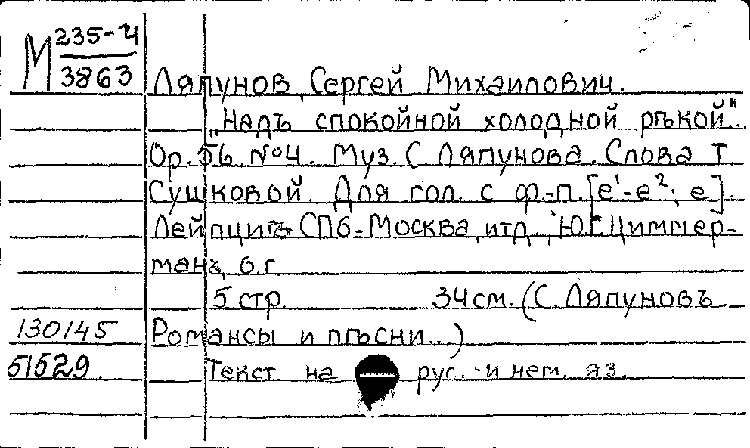 М 235-4
3863
Ляпунов, Сергей Михаилович.
„Надъ спокойной холодной рѣкой".
Ор. 56. №4. Муз. С Ляпунова. Слова Т
Сушковой. Для гол. с ф.-п. [e¹-e²; e].
Лейпцигъ СПб-Москва, итд, Ю.Г. Циммер-
манъ, б.г.
5 стр. 34см. (С. Ляпуновъ
130145 Романсы и пѣсни...)
51529 Текст на рус. и нем. яз.